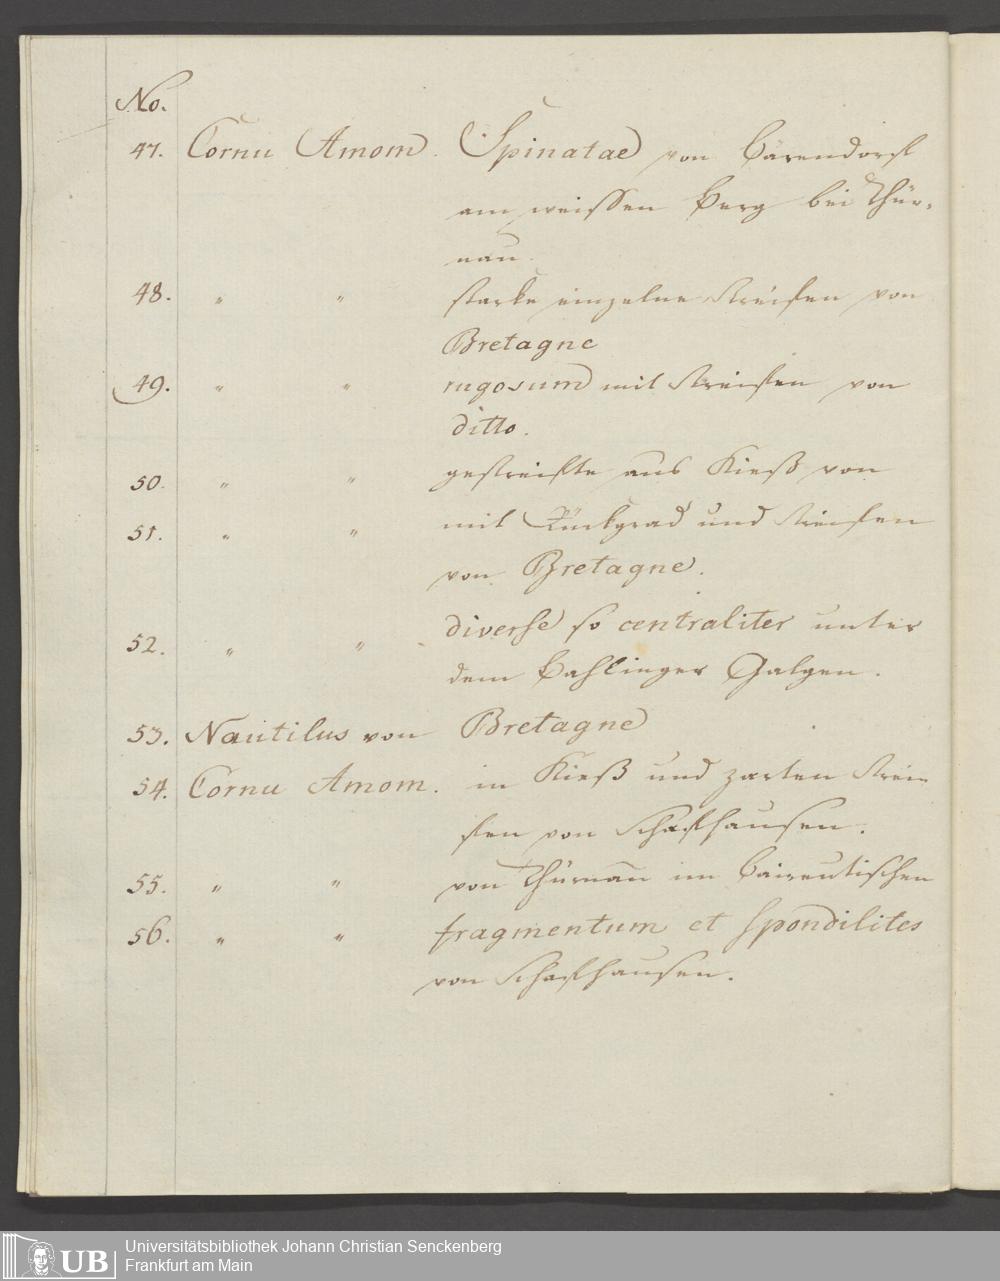 No.
47. Cornu Amom. Spinatae von Bärendorf
am weissen Berg bei Thür-
nau.
48. " " starke einzelne Streifen von
Bretagne
49. " " rugosum mit Streifen von
ditto.
50. " " gestreifte aus Kieß von
51. " " mit Rückgrad und Streifen
von Bretagne.
52. " " diverse so centraliter unter
dem Bahlinger Galgen.
53. Nautilus von Bretagne
54. Cornu Amom. in Kieß und zarten Strei-
fen von Schafhausen.
55. " " von Thürnau im Baireutischen
56. " " fragmentum et Spondilites
von Schafhausen.
UB Universitätsbibliothek Johann Christian Senckenberg
Frankfurt am Main